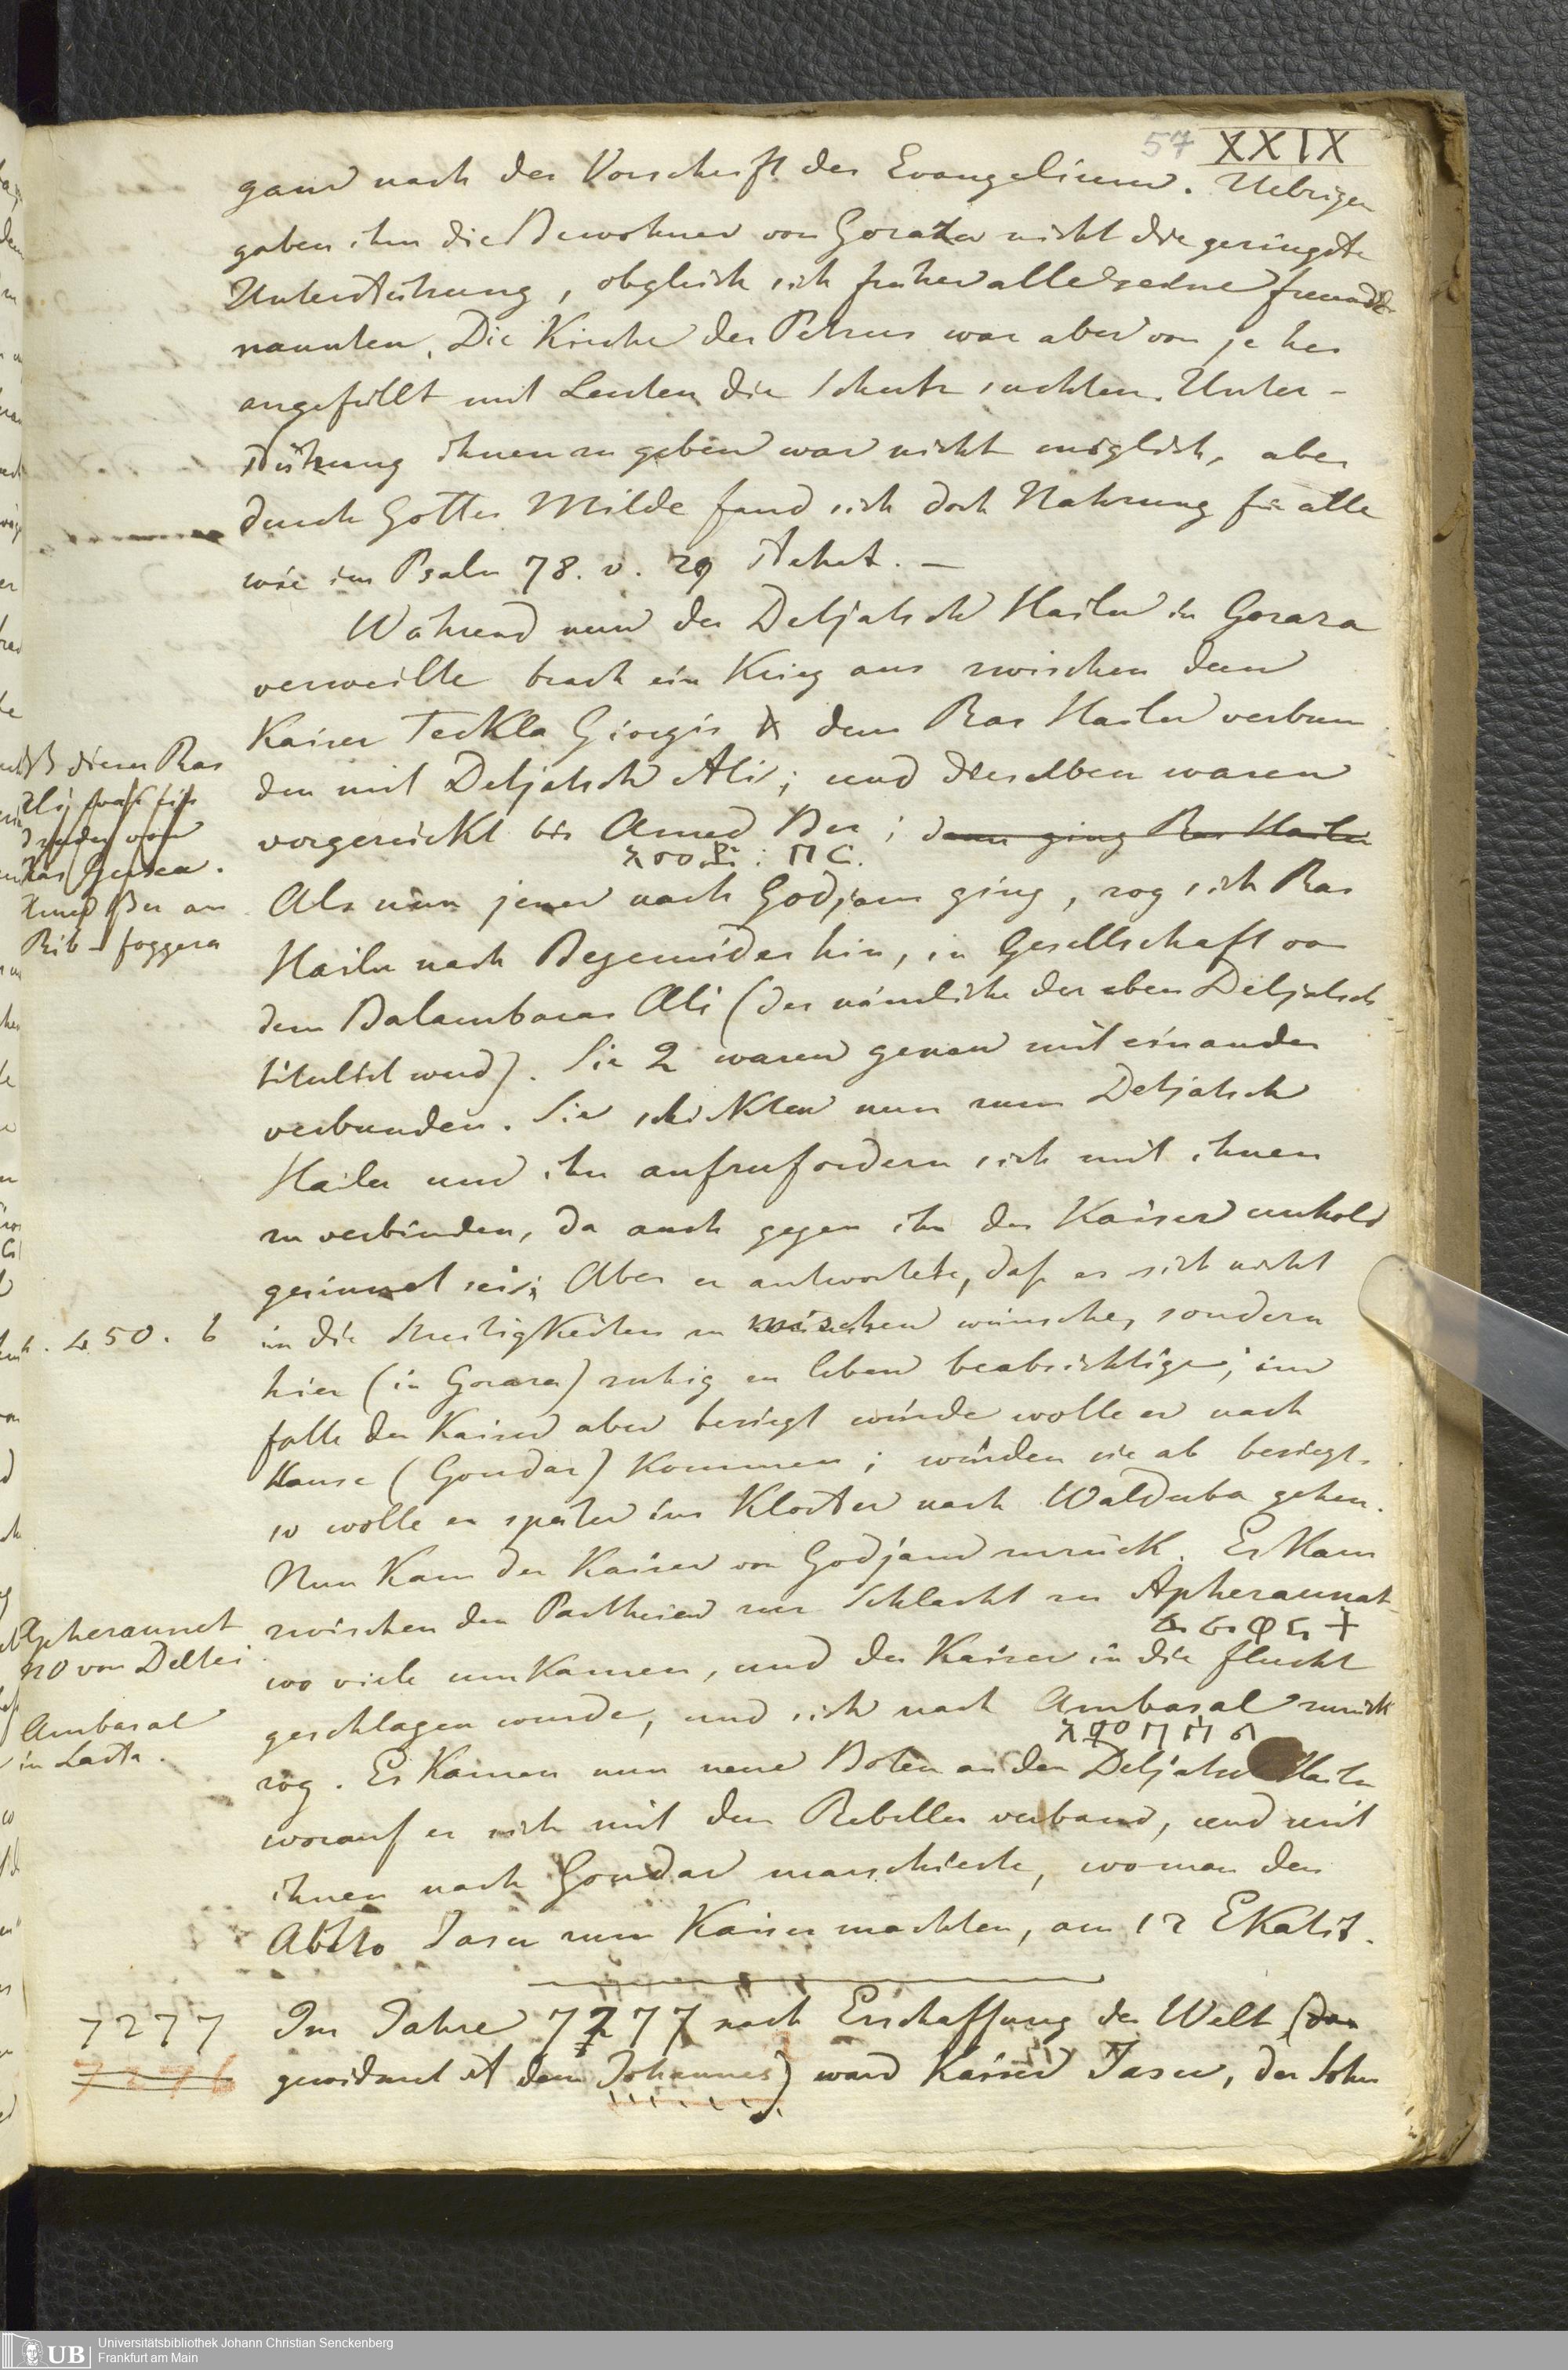 57 XXIX
ganz nach der Vorschrift des Evangeliums. Uebrigen
gaben ihm die Bewohner von Goraza nicht die geringste
Unterstützung, obgleich sich früher alle seine freunde
nannten. Die Kirche des Petrus war aber von je her
angefüllt mit Leuten die Schutz suchten. Unter-
stützung ihnen zu geben war nicht möglich, aber
durch Gottes Milde fand sich doch Nahrung für alle
wie im Psalm 78. v. 29 stehet. —
Während nun der Detjatsch Hailu in Goraza
verweilte brach ein Krieg aus zwischen dem
Kaiser Teckla Giorgis & dem Ras Hailu verbun
den mit Detjatsch Ali; und dieselben waren
vorgerückt bis Amed Ber; dann ging Ras Hailu
አሞዴ : በር.
Als nun jener nach Godjam ging, zog sich Ras
Hailu nach Begemider hin, in Gesellschaft von
dem Balambaras Ali (der nämliche der eben Detjatsch
titulirt ward). Sie 2 waren genau mit einander
verbunden. Sie schickten nun zum Detjatsch
Hailu und ihn aufzufordern sich mit ihnen
zu verbinden, da auch gegen ihn der Kaiser unhold
gesinnet sei; Aber er antwortete, daß er sich nicht
in die Streitigkeiten zu mischen wünsche, sondern
hier (in Goraza) ruhig zu leben beabsichtige; im
falle der Kaiser aber besiegt würde wolle er nach
Hause (Gondar) kommen; würden sie ab besiegt,
so wolle er später ins Kloster nach Walduba gehen.
Nun kam der Kaiser von Godjam zurück. Es kam
zwischen den Partheien zur Schlacht zu Apheraunat
አፈረዋናት
wo viele umkamen, und der Kaiser in die flucht
geschlagen wurde, und sich nach Ambasal zurück
አምባሰል
zog. Es kamen nun neue Boten an den Detjatsch Hailu
worauf er sich mit den Rebellen verband, und mit
ihnen nach Gondar marschierte, wo man den
Abeto Jasu zum Kaiser machten, am 12 Ekatit.
Im Jahre 7277 nach Erschaffung der Welt (das
gewidmet ist dem Johannes) ward Kaiser Jasu, der Sohn
diesen Ras
Ali
Bruder von
Ras
Amed Ber am
Rib – foggera
450. b
Apheraunet
NO von Deltei
Ambasal
in Lasta.
7277
7276
Universitätsbibliothek Johann Christian Senckenberg
Frankfurt am Main
UB